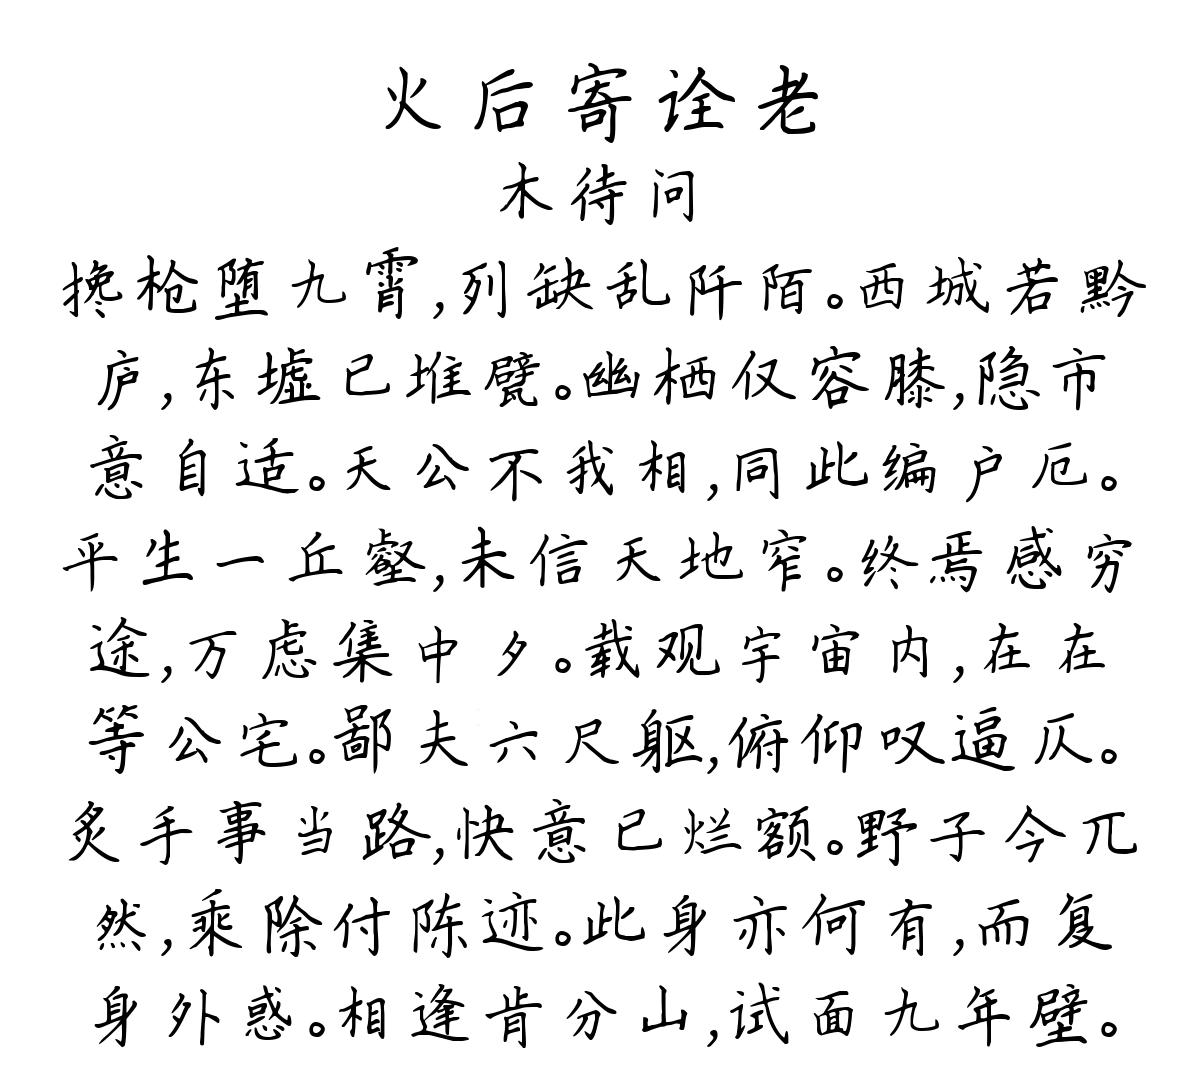 火后寄诠老
木待问
搀枪堕九霄,列缺乱阡陌。西城若黔
庐,东墟已堆甓。幽栖仅容膝,隐市
意自适。天公不我相,同此编户厄。
平生一丘壑,未信天地窄。终焉感穷
途,万虑集中夕。载观宇宙内,在在
等公宅。鄙夫六尺躯,俯仰叹逼仄。
炙手事当路,快意已烂额。野子今兀
然,乘除付陈迹。此身亦何有,而复
身外惑。相逢肯分山,试面九年壁。